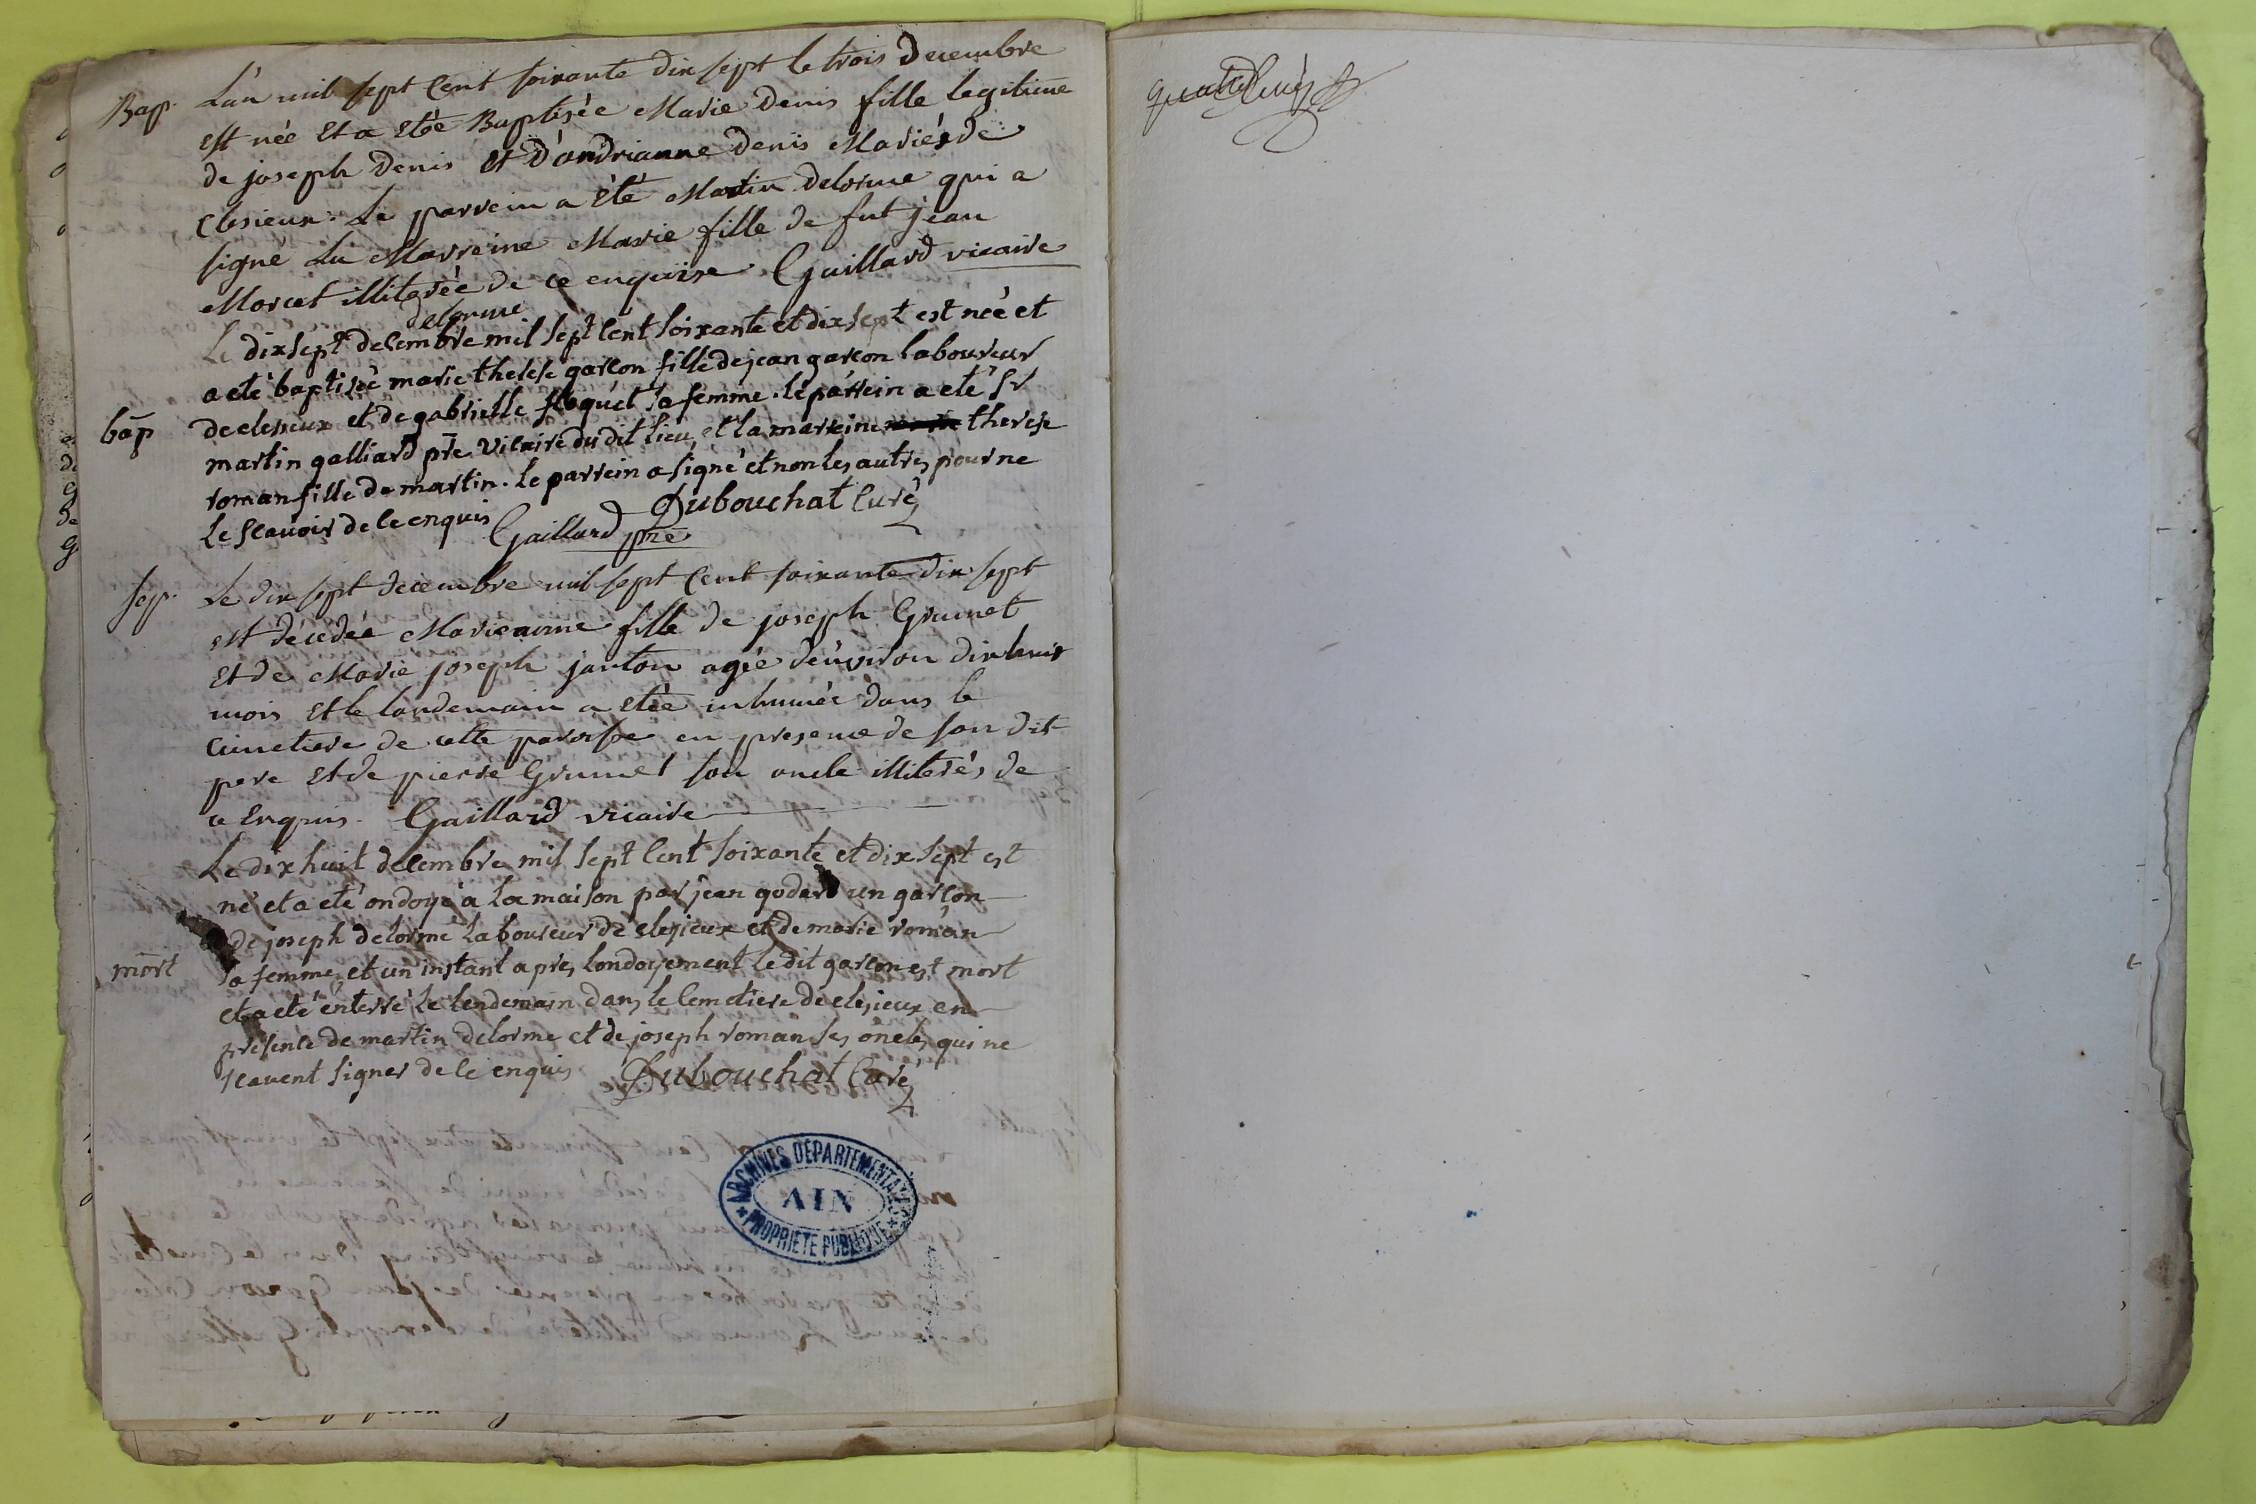 Bap. L'an mil sept Cent soixante dix sept le trois Decembre
est née Et a Etée Baptisée Marie Denis fille legitime
de joseph Denis et D'andrianne Denis Mariés de
Clesieux. Le parrein a été Martin Delorme qui a
signé La Marreine Marie fille de fut jean
Morcel illiterée de ce enquise. Gaillard vicaire
delorme
Le dixsept decembre mil sept cent soixante et dix sept est née et
a eté baptisée marie therese garcon fille de jean garcon laboureur
bap de clesieux et de gabrielle floquet sa femme. le parrein a eté Sr
martin galliard pre vicaire du dit lieu, et la marreine therese
roman fille de martin. le parrein a signé et non les autres pour ne
le scavoir de ce enquis Dubouchat Curé
Gaillard pre
Sep. Le dix sept decembre mil sept Cent soixante dix sept
est décédée Marieanne fille de joseph Grumet
Et de Marie joseph janton agée d'environ dix huit
mois Et le landemain a etée inhumée dans le
Cimetiere de cette paroisse en presence de son dit
pere Et de pierre Grumet son oncle illiterés de
ce Enquis. Gaillard vicaire
Le dix huit decembre mil sept cent soixante et dix sept est
né et a eté ondoyé à la maison par jean godard un garcon
de joseph delorme laboureur de clesieux et de marie roman
mort sa femme, et un instant apres londoyement le dit garcon est mort
et a eté enterré le lendemain dans le cemetiere de clesieux en
présence de martin delorme et de joseph roman ses oncles qui ne
scavent signer de ce enquis Dubouchat Curé
ARCHIVES DEPARTEMENTALES
AIN
PROPRIETE PUBLIQUE